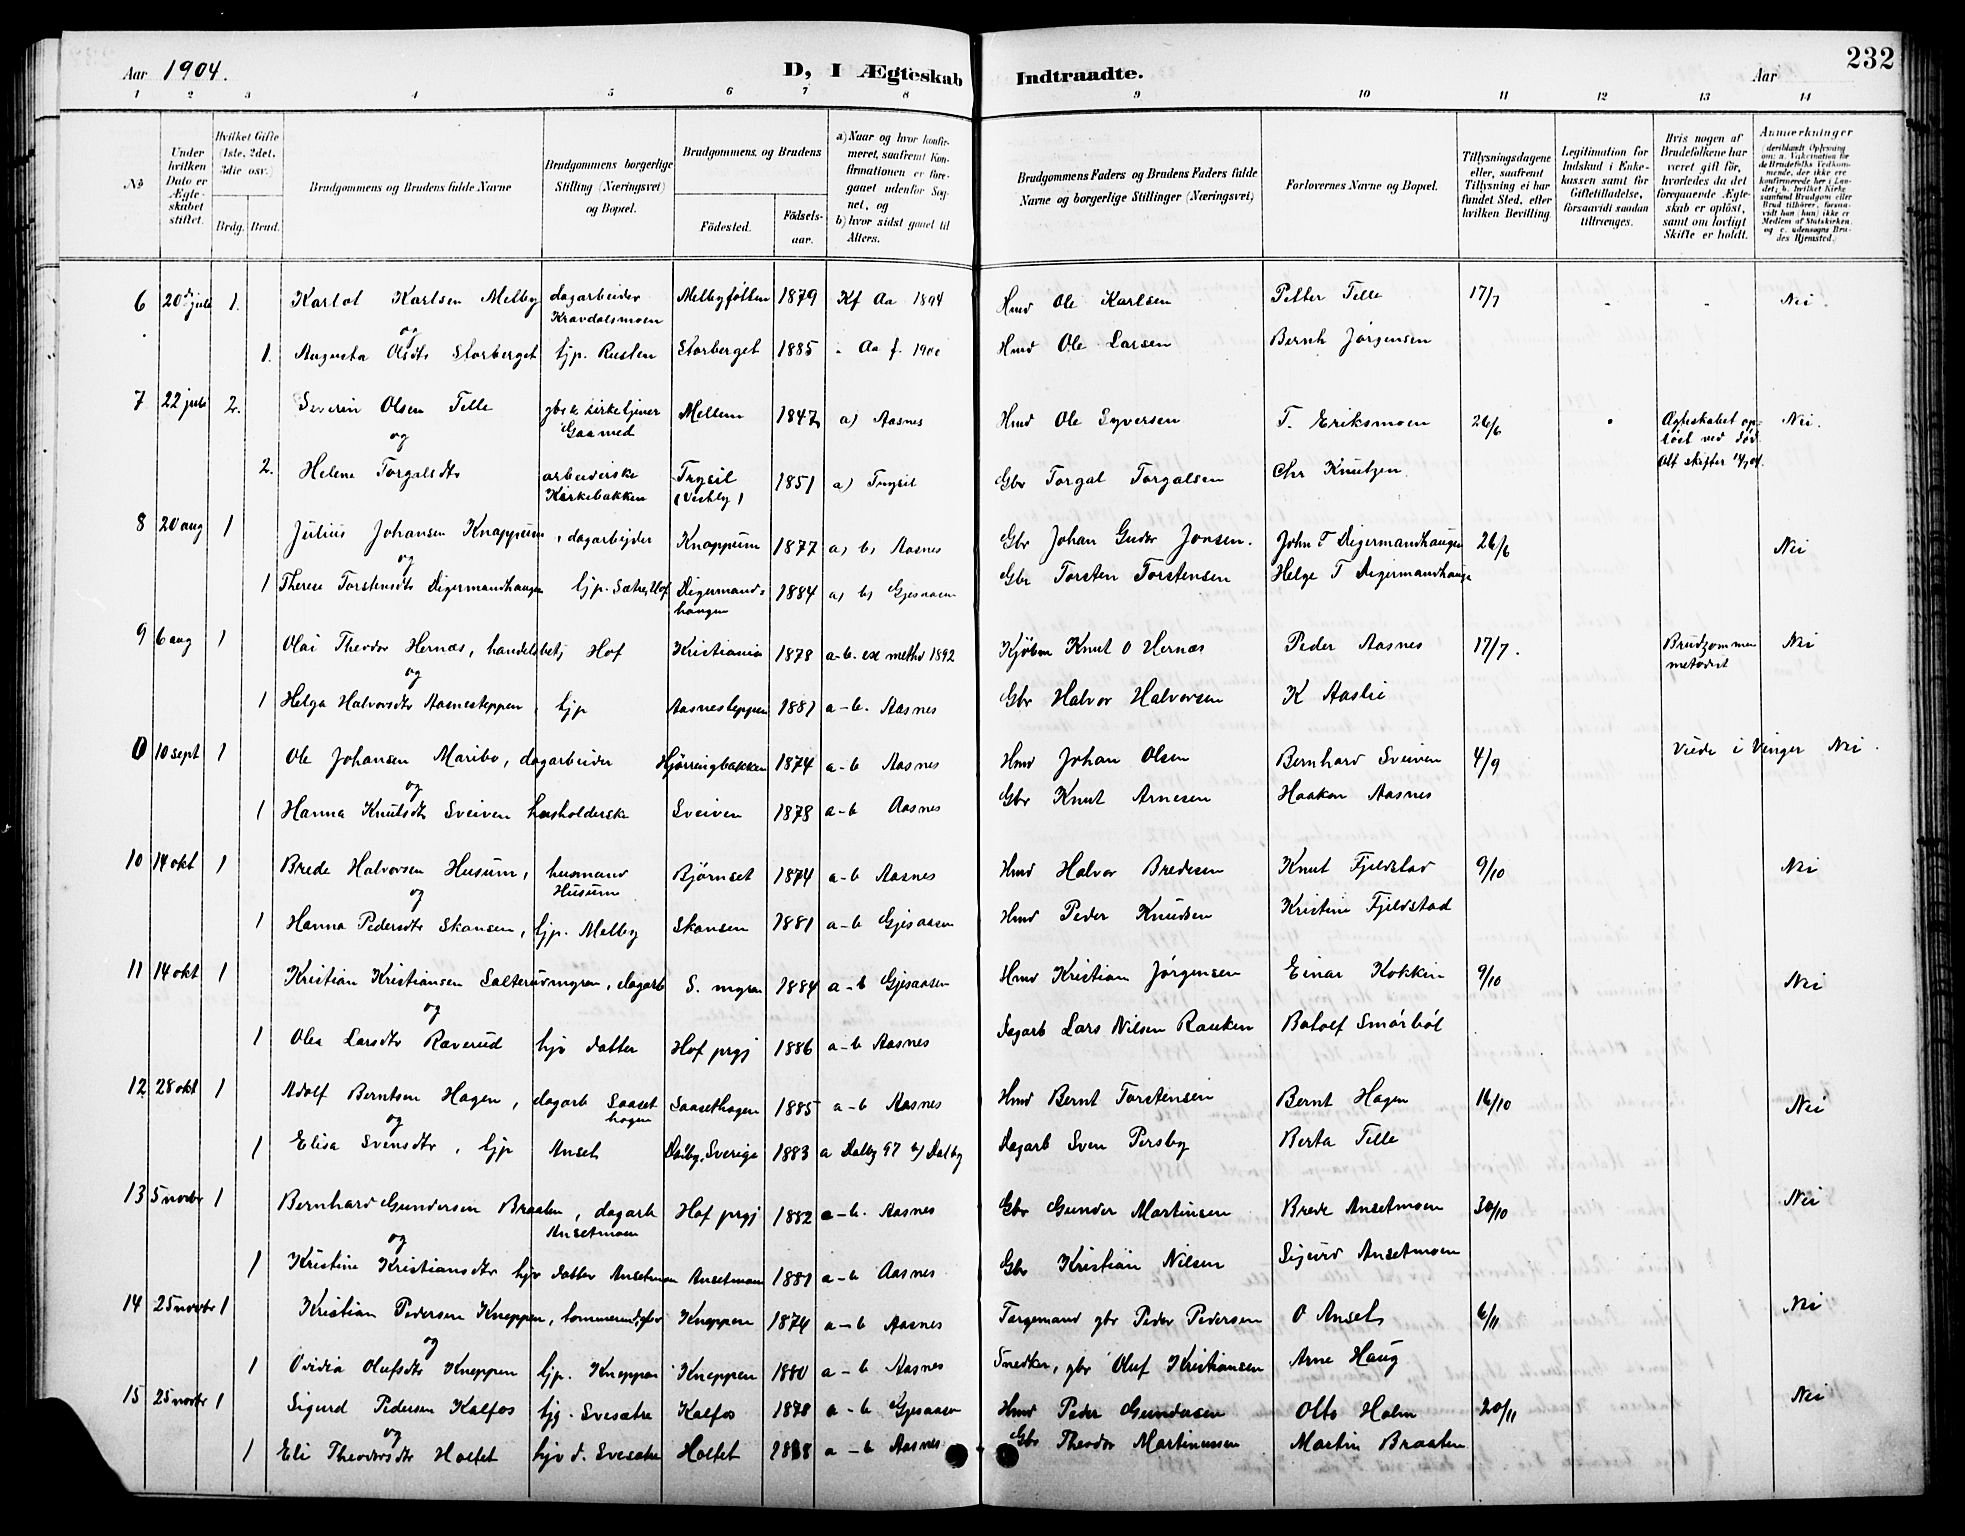 232
Aar 1904.
D, I Ægteskab Indtraadte.
Aar
1 2 3 4 5 6 7 8 9 10 11 12 13 14
No
Under hvilken Dato er Ægteskabet stiftet.
Hvilket Gifte (1ste, 2det, 3die osv.)
Brdg. Brud.
Brudgommens og Brudens fulde Navne
Brudgommens borgerlige Stilling (Næringsvei) og Bopæl.
Brudgommens og Brudens
Fødested.
Fødselsaar.
a) Naar og hvor konfirmeret, saafremt Konfirmationen er foregaaet udenfor Sognet, og
b) hvor sidst gaaet til Alters.
Brudgommens Faders og Brudens Faders fulde Navne og borgerlige Stillinger (Næringsvei)
Forlovernes Navne og Bopæl.
Tillysningsdagene eller, saafremt Tillysning ei har fundet Sted, efter hvilken Bevilling.
Legitimation for Indskud i Enkekassen samt for Giftetilladelse, forsaavidt saadan tiltrænges.
Hvis nogen af Brudefolkene har været gift før, hvorledes da det foregaaende Ægteskab er opløst, samt om lovligt Skifte er holdt.
Anmerkninger
(deriblandt Oplysning om: a. Vakcination for de Brudefolks Vedkommende, der ikke ere konfirmerede her i Landet; b. hvilket Kirkesamfund Brudgom eller Brud tilhører, forsaavidt han (hun) ikke er Medlem af Statskirken, og c. udensogns Brudes Hjemsted.)
6 20de juli 1. Karlot Karlsen Melby dagarbeider Kravdalsmoen Melbyføtten 1879 Kf Aa 1894 Hmd Ole Karlsen Petter Telle 17/7 - - Nei.
og
1. Augusta Olsdtr Storberget tjp. Rusten Storberget 1885 - Aa f. 1900 Hmd Ole Larsen Bernh Jørgensen
7 22 juli 2. Severin Olsen Telle gbr & kirketjener Gaarned Mellem 1847 a) Aasnes Hmd Ole Syversen T. Eriksmoen 26/6 Ægteskabet opløst ved død. Nei.
og
2. Helene Torgalsdtr arbeiderske Kirkebakken Trysil (Vestby) 1851 a) Trysil Gbr Torgal Torgalsen Chr Knutzen
8 20 aug 1 Julius Johansen Knappum, dagarbejder Knappum 1877 a) b) Aasnes Gbr Johan Guder Jonsen. John T Digermandhaugen 26/6 Nei
og
1 Therese Torstensdtr Digermandhaugen tjp. Sætre, Hof Digermandshaugen 1884 a) b) Gjesaasen Gbr Torsten Torstensen Helge T Digermandhauge
9 6 aug 1 Olai Theodor Hernæs, handelsbetj Hof Kristiania 1878 a-b. ex meth 1892 Kjøbm Knut O Hernæs Peder Aasnes 17/7. Brudgommen metodist Nei
og
1 Helga Halvorsdtr Aasnesteppen, tjp Aasnesteppen 1881 a-b. Aasnes Gbr Halvor Halvorsen K Aaslie
0 10 sept 1 Ole Johansen Maribo, dagarbeider Hjørringbakken 1874 a-b Aasnes Hmd Johan Olsen Bernhard Sveiven 4/9 Viede i Vinger Nei.
og
1 Hanna Knutsdtr Sveiven husholderske Sveiven 1878 a-b Aasnes Gbr Knut Arnesen Haakon Aasnes
10 14 okt 1 Brede Halvorsen Husum, husmand Husum Bjørnset 1874 a-b Aasnes Hmd Halvor Bredesen Knut Fjeldstad 9/10 Nei
og
1 Hanna Pedersdtr Skansen, tjp. Melby Skansen 1881 a-b Gjesaasen Hmd Peder Knudsen Kristine Fjeldstad
11 14 okt 1 Kristian Kristiansen Salterudmyren, dagarb S. myren 1884 a-b Gjesaasen Hmd Kristian Jørgensen Einar Kokkin 9/10 Nei
og
1 Olea Larsdtr Raverud hjv datter Hof prgj 1886 a-b Aasnes Dagarb Lars Nilsen Rauken Botolf Smørbøl
12 28 okt 1 Adolf Berntsen Hagen, dagarb Saasethagen Saasethagen 1885 a-b Aasnes Hmd Bernt Torstensen Bernt Hagen 16/10 Nei
og
1 Elisa Svensdtr, tjp Anset Dalby, Sverige 1883 a Dalby 97 b) Dalby Dagarb Sven Persby Berta Telle
13 5 novbr 1 Bernhard Gundersen Braaten, dagarb Ansetmoen Hof prgj 1882 a-b. Aasnes Gbr Gunder Martinsen Brede Ansetmoen 30/10 Nei
og
1 Kristine Kristiansdtr hjv datter Ansetmoen Ansetmoen 1881 a-b Aasnes Gbr Kristian Nilsen Sigurd Ansetmoen
14 25 novbr 1 Kristian Pedersen Kneppen, tømmerm Kneppen 1874 a-b Aasnes Torgemand gbr Peder Pedersen O Anset 6/11 Nei
og
1 Ovidia Olufsdtr Kneppen tjp. Kneppen Kneppen 1880 a-b Aasnes Snedker, gbr Oluf Kristiansen Arne Haug
15 25 novbr 1 Sigurd Pedersen Kalfos tjg. Svesætre Kalfos 1878 a-b Gjesaasen Hmd Peder Gundersen Otto Holm 20/11 Nei
og
1 Eli Theodorsdtr Holtet hjv d. Svesætre Holtet a-b Aasnes Gbr Theodor Martinussen Martin Braaten